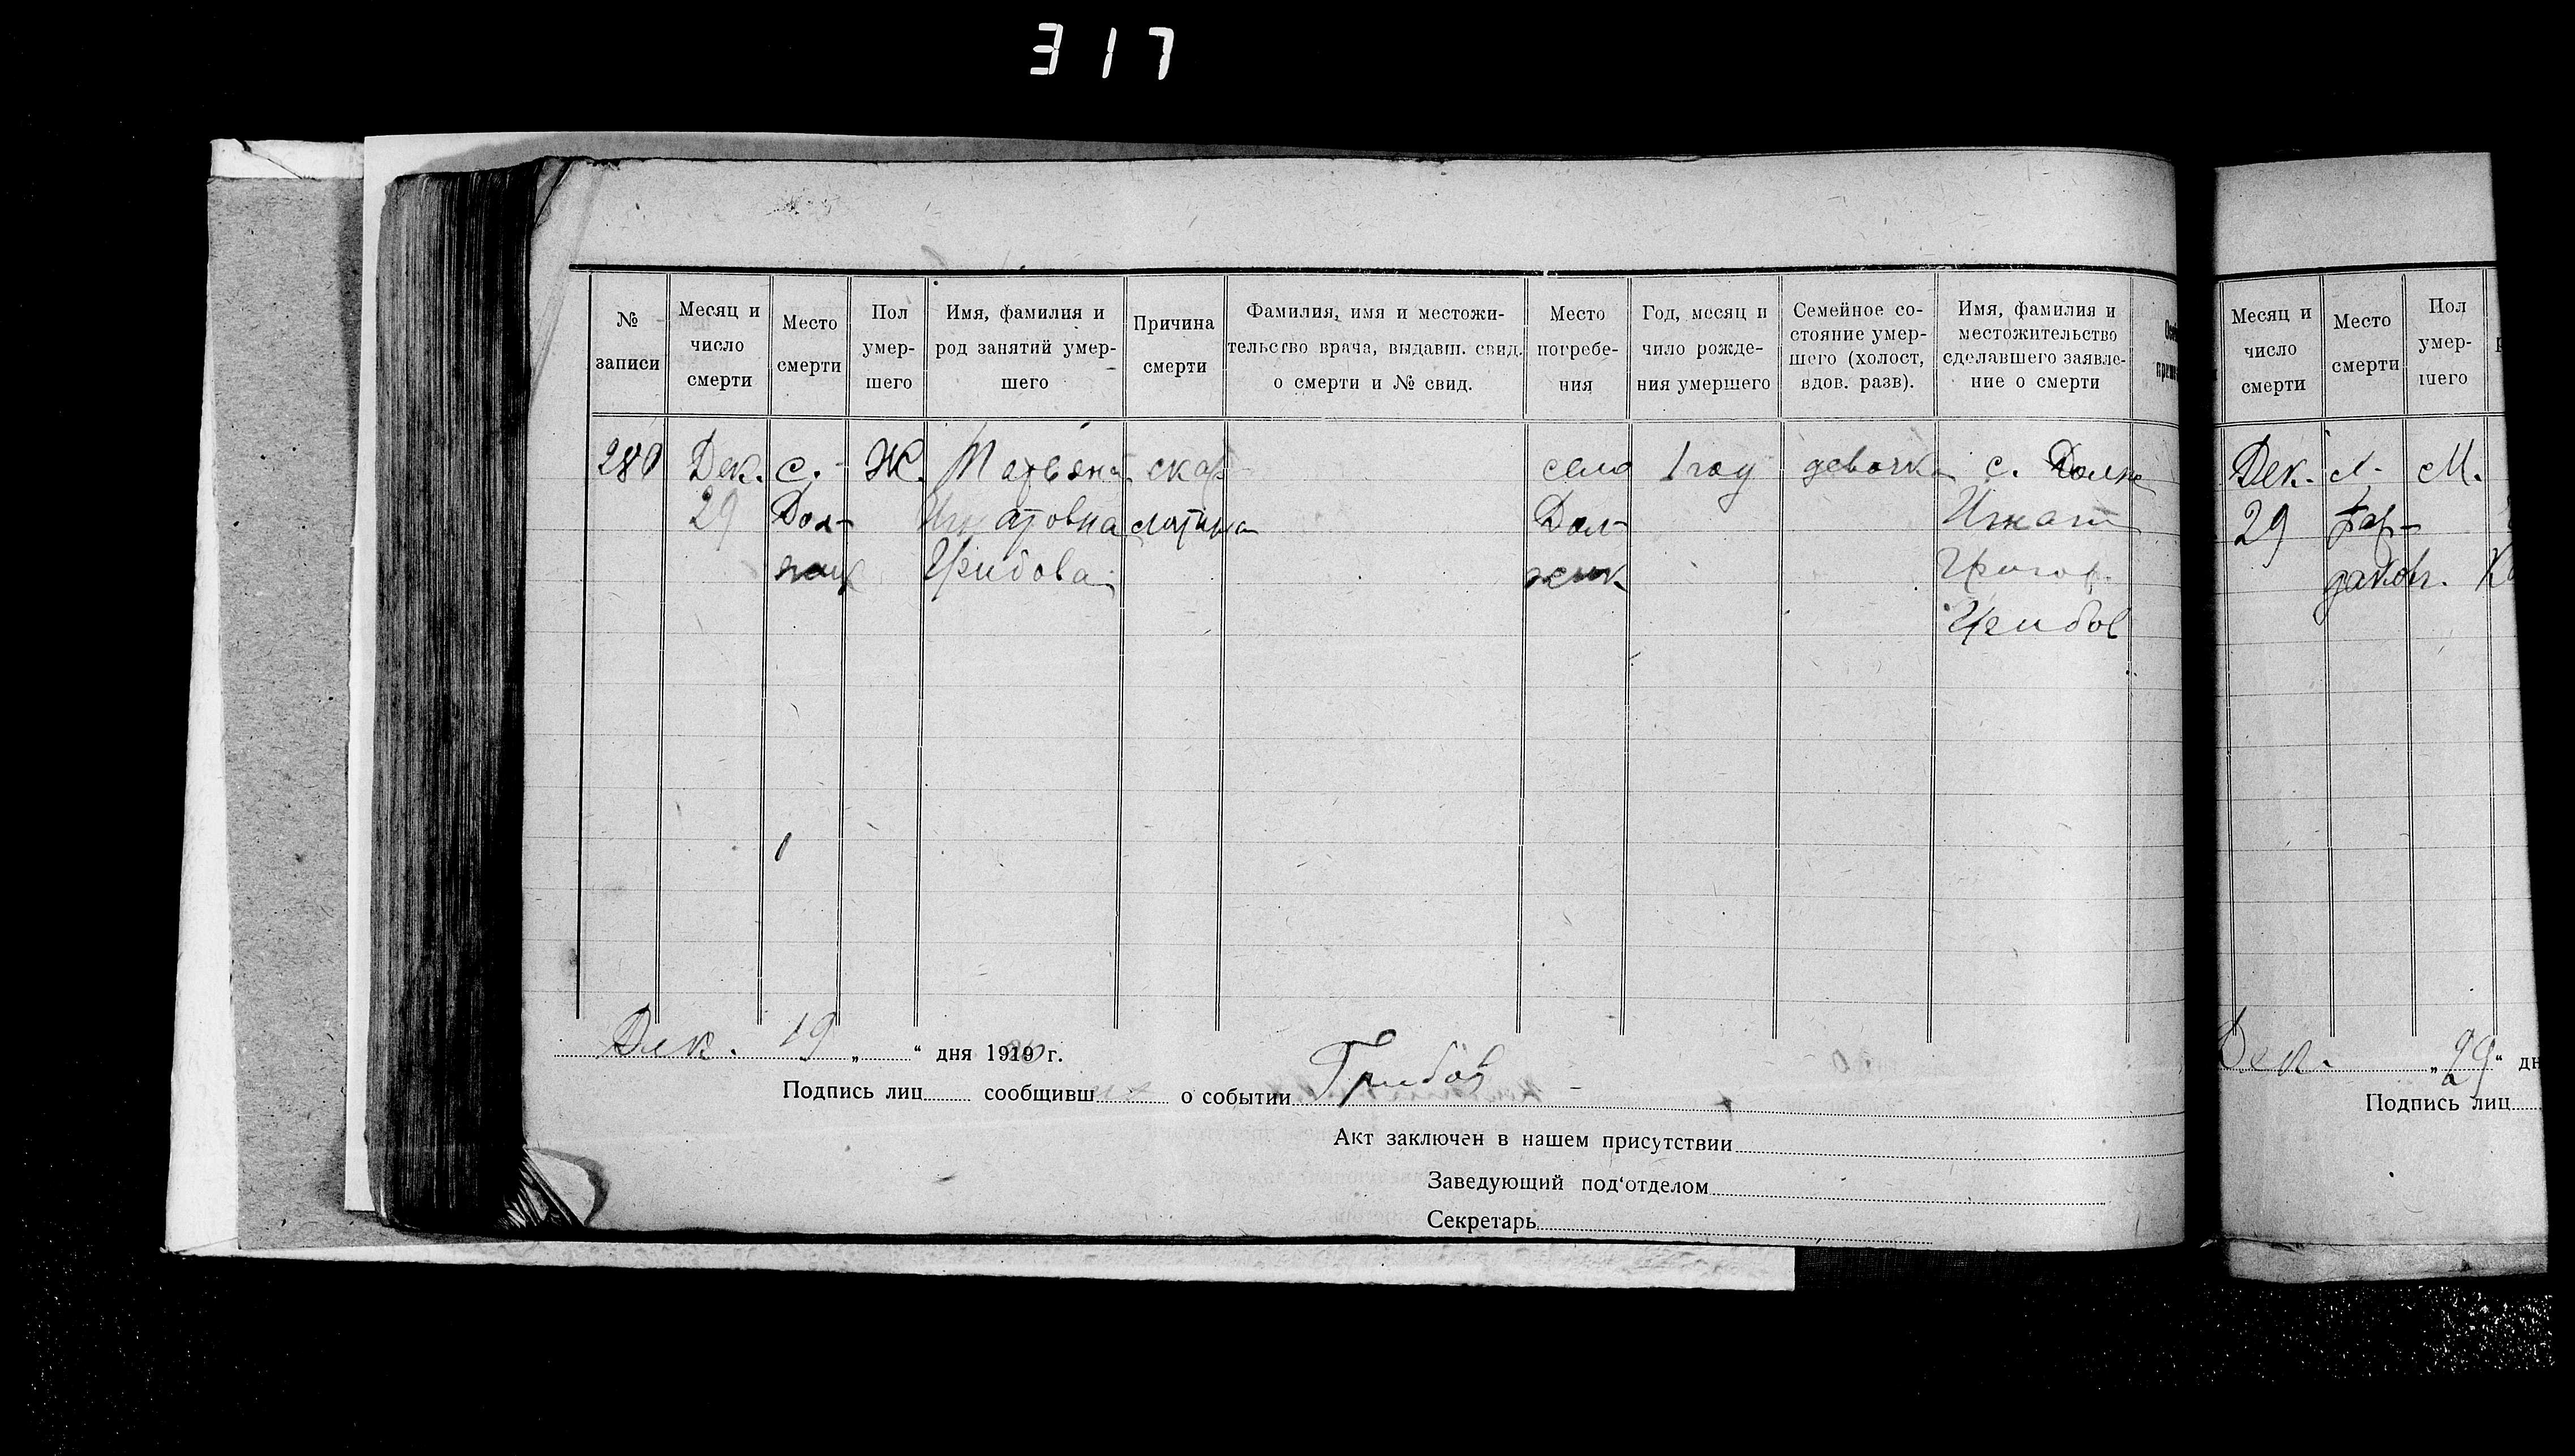 317
№ записи
Месяц и число смерти
Место смерти
Пол умер-шего
Имя, фамилия и род занятий умер-шего
Причина смерти
Фамилия, имя и местожи-тельство врача, выдавш. свид. о смерти и № свид.
Место погребе-ния
Год, месяц и чило рожде-ния умершего
Семейное со-стояние умер-шего (холост, вдов. разв).
Имя, фамилия и местожительство сделавшего заявле-ние о смерти
280
Дек.
29
с.
Дол-
Ж.
Татьяна
Игнатовна
Грибова
скар-
латина
село
Дол-
1 год
девочка
с.
Игнат
Григор.
Грибов
Дек. 19 „ “ дня 1919 г.
Подпись лиц сообщивш о событии Грибов
Акт заключен в нашем присутствии
Заведующий под‘отделом
Секретарь
Месяц и число смерти
Место смерти
Пол умер-шего
Дек.
29
М.
Дек. „ 29 “ дн
Подпись лиц